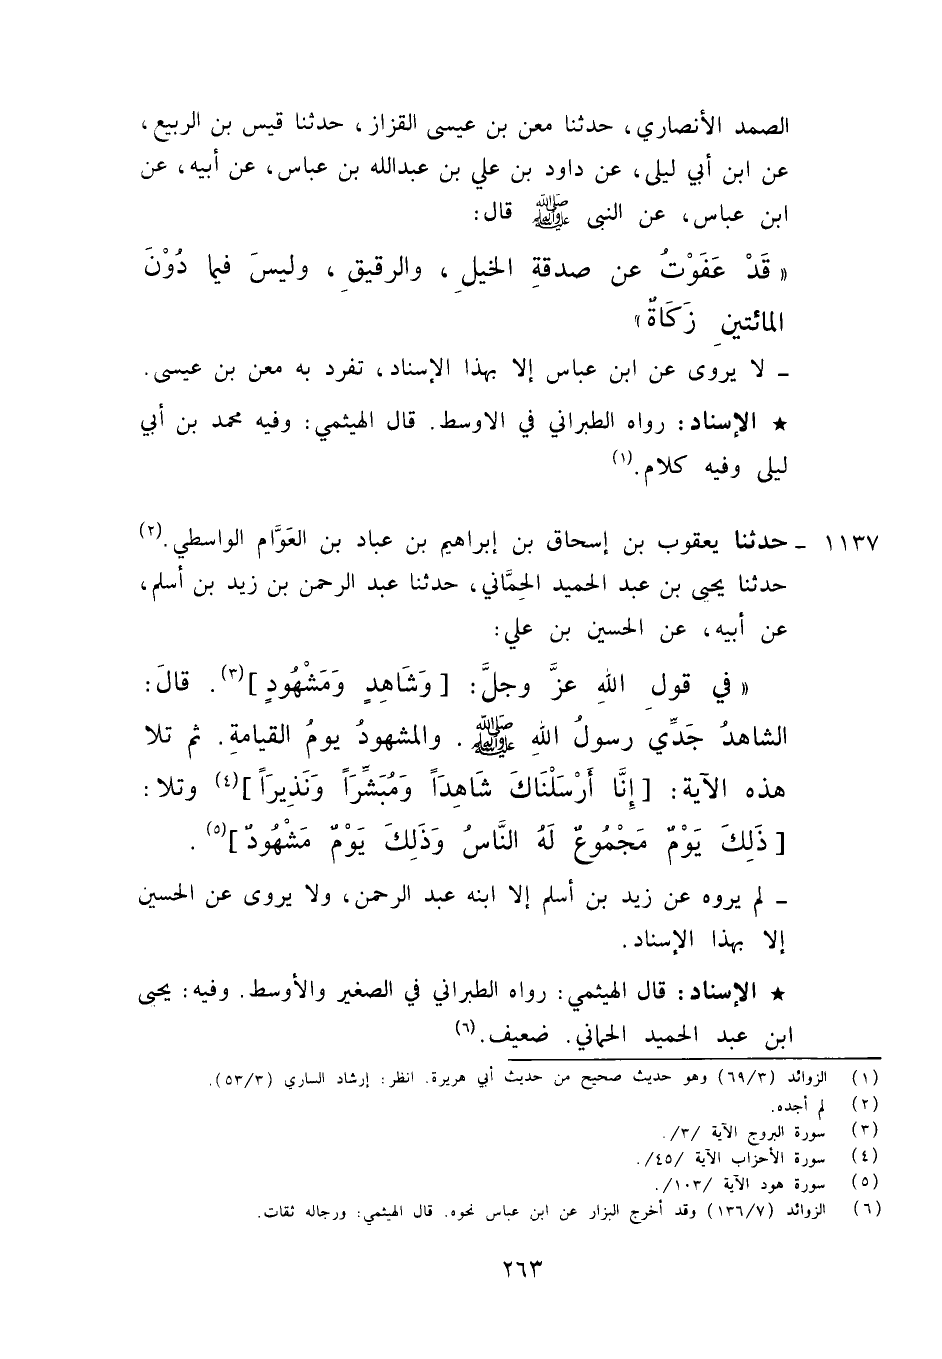 الصمد الأنصاري، حدثنا معن بن عيسى القزاز، حدثنا قيس بن الربيع،
عن ابن أبي ليلى، عن داود بن علي بن عبدالله بن عباس، عن أبيه، عن
ابن عباس، عن النبى ﷺ قال:
« قَدْ عَفَوْتُ عن صدقةِ الخيلِ، والرقيقِ، وليسَ فيما دُوْنَ
المائتينِ زَكَاةٌ»
ـ لا يروى عن ابن عباس إلا بهذا الإسناد، تفرد به معن بن عيسى.
★ الإسناد: رواه الطبراني في الاوسط. قال الهيثمي: وفيه محمد بن أبي
ليلى وفيه كلام.(١)
١١٣٧ ـ حدثنا يعقوب بن إسحاق بن إبراهيم بن عباد بن العَوَّام الواسطي.(٢)
حدثنا يحيى بن عبد الحميد الحِمَّاني، حدثنا عبد الرحمن بن زيد بن أسلم،
عن أبيه، عن الحسين بن علي:
« في قولِ اللهِ عزَّ وجلَّ: [وَشَاهِدٍ وَمَشْهُودٍ](٣). قالَ:
الشاهدُ جَدِّي رسولُ اللهِ ﷺ. والمشهودُ يومُ القيامةِ. ثم تلا
هذه الآية: [إِنَّا أَرْسَلْنَاكَ شَاهِدَاً وَمُبَشِّرَاً وَنَذِيرَاً](٤) وتلا:
[ذَلِكَ يَوْمٌ مَجْمُوعٌ لَهُ النَّاسُ وَذَلِكَ يَوْمٌ مَشْهُودٌ](٥).
ـ لم يروه عن زيد بن أسلم إلا ابنه عبد الرحمن، ولا يروى عن الحسين
إلا بهذا الإسناد.
★ الإسناد: قال الهيثمي: رواه الطبراني في الصغير والأوسط. وفيه: يحيى
ابن عبد الحميد الحماني. ضعيف.(٦)
(١) الزوائد (٦٩/٣) وهو حديث صحيح من حديث أبي هريرة. انظر: إرشاد الساري (٥٣/٣).
(٢) لم أجده.
(٣) سورة البروج الآية /٣/.
(٤) سورة الأحزاب الآية /٤٥/.
(٥) سورة هود الآية /١٠٣/.
(٦) الزوائد (١٣٦/٧) وقد أخرج البزار عن ابن عباس نحوه. قال الهيثمي: ورجاله ثقات.
٢٦٣